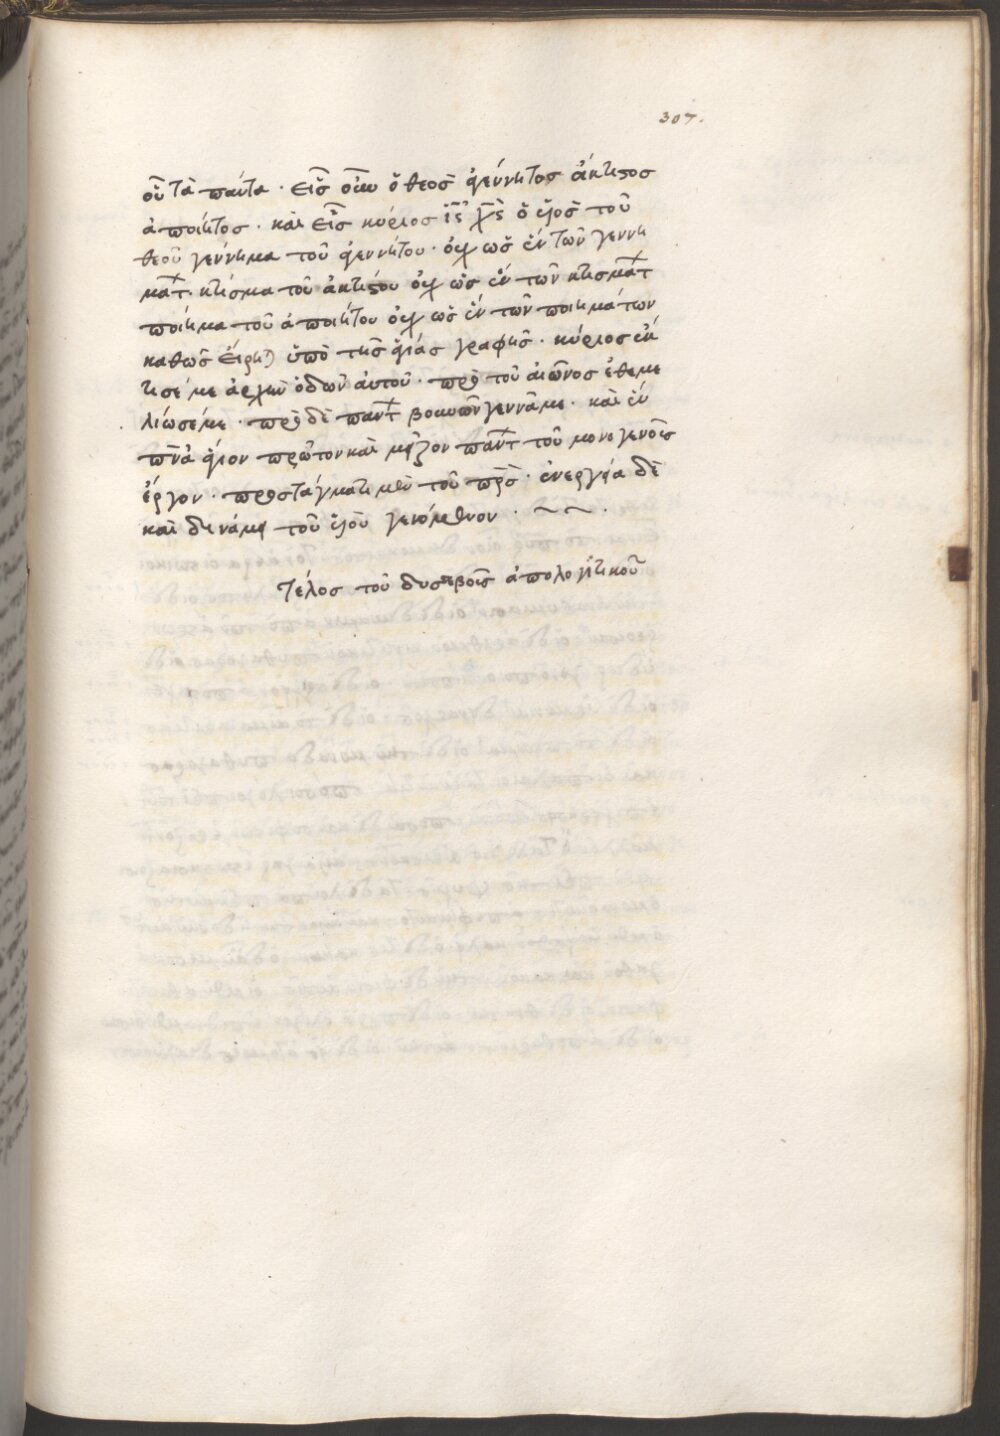 307.
οὗ τὰ πάντα · εἷς οὖν ὁ θεὸς ἀγέννητος ἄκτιστος
ἀποίητος · καὶ εἷς κύριος ι̅ς̅ χ̅ς̅ ὁ υἱὸς τοῦ
θεοῦ γέννημα τοῦ ἀγεννήτου · οὐχ ὡς ἓν τῶν γεννη
μάτ κτίσμα τοῦ ἀκτίστου οὐχ ὡς ἓν τῶν κτισμάτ
ποίημα τοῦ ἀποιήτου οὐχ ὡς ἓν τῶν ποιημάτων
καθὼς εἴρηται ὑπὸ τῆς ἁγίας γραφῆς · κύριος ἔκ
τισέ με ἀρχὴν ὁδῶν αὐτοῦ · πρὸ τοῦ αἰῶνος ἐθεμε
λίωσέ με · πρὸ δὲ πάντ βουνῶν γεννᾶ με · καὶ ἓν
π̅ν̅α̅ ἅγιον πρῶτον καὶ μεῖζον πάντ τοῦ μονογενοῦς
ἔργον · προστάγματι μὲν τοῦ π̅ρ̅ς̅ · ἐνεργεία δὲ
καὶ δυνάμει τοῦ υἱοῦ γενόμενον · ~ ~ ·
τέλος τοῦ δυσεβοῦς ἀπολογητικοῦ